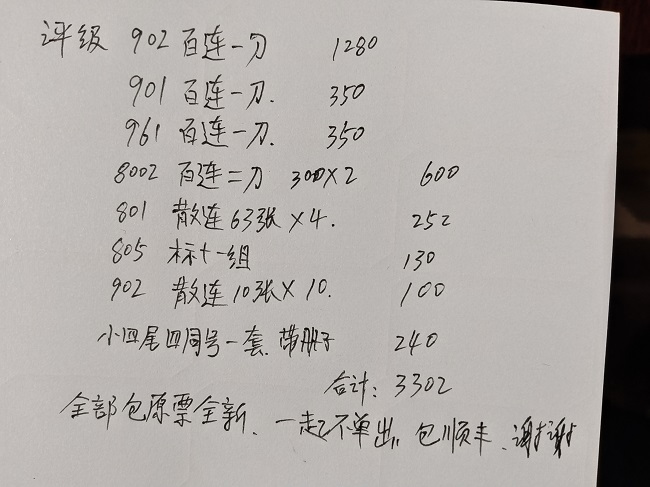 评级 902 百连一刀 1280
901 百连一刀. 350
961 百连一刀. 350
8002 百连二刀 300×2 600
801 散连63张×4. 252
805 标十一组 130
902 散连10张×10. 100
小四尾四同号一套.带册子 240
合计:3302
全部包原票全新、一起不单出,包顺丰、谢谢